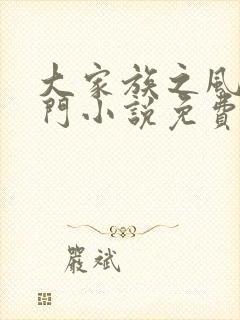 大家族之風
門小説免費
嚴斌